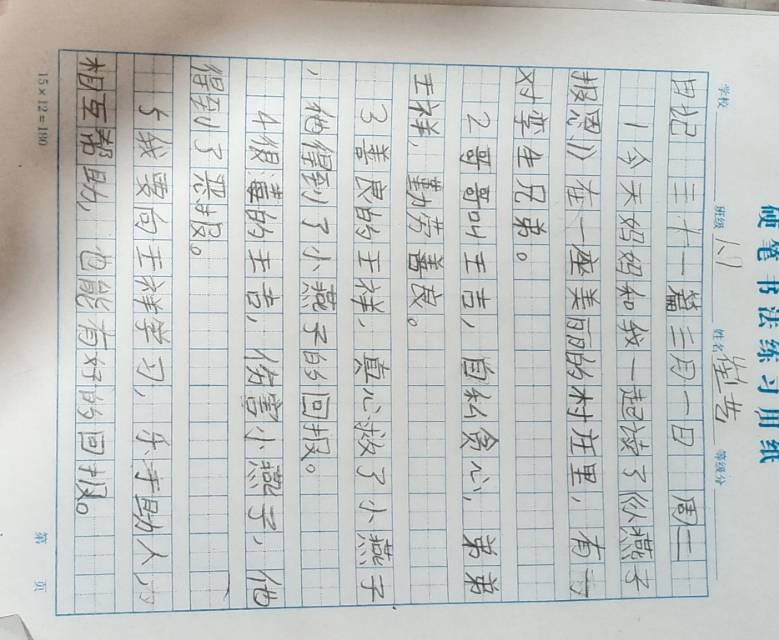 硬笔书法练习用纸
学校 班级 1.1 姓名 等级分
日记三十一篇三月一日 周二
1今天妈妈和我一起读了《小燕子
报恩》在一座美丽的村庄里，有一
对孪生兄弟。
2哥哥叫王吉，自私贪心，弟弟
王祥，勤劳善良。
3善良的王祥，真心救了小燕子
，他得到了小燕子的回报。
4狠毒的王吉，伤害小燕子，他
得到了恶报。
5我要向王祥学习，乐于助人
相互帮助，也能有好的回报。
15×12=180
第 页